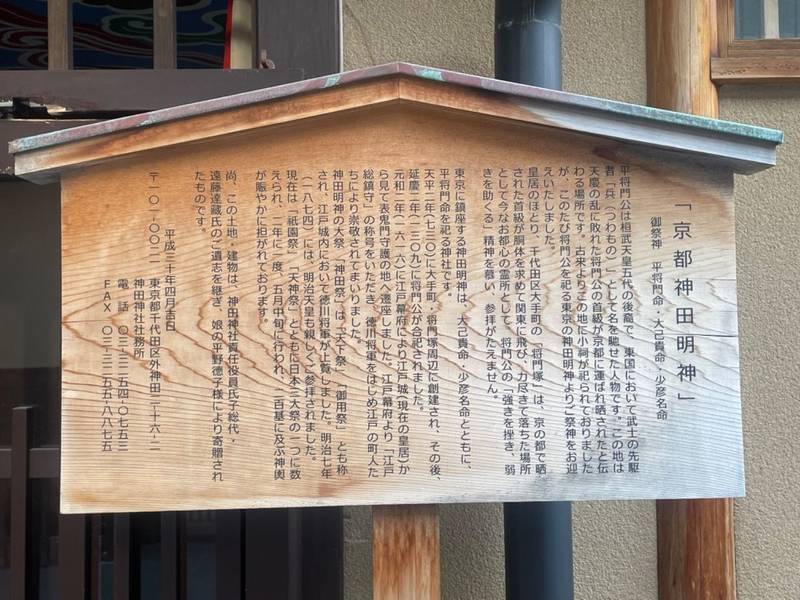 「京都神田明神」
御祭神　平将門命・大己貴命・少彦名命
平将門公は桓武天皇五代の後裔で、東国において武士の先駆
者「兵（つわもの）」として名を馳せた人物です。この地は
天慶の乱に敗れた将門公の首級が京都に運ばれ晒されたと伝
わる場所です。古来よりこの地に小祠が祀られておりました
が、このたび将門公を祀る東京の神田明神よりご祭神をお迎
えいたしました。
皇居のほとり、千代田区大手町の「将門塚」は、京の都で晒
された首級が胴体を求めて関東に飛び、力尽きて落ちた場所
として今なお都心の霊所として、将門公の「強きを挫き、弱
きを助くる」精神を慕い、参拝がたえません。
東京に鎮座する神田明神は、大己貴命・少彦名命とともに、
平将門命を祀る神社です。
天平二年（七三〇）に大手町・将門塚周辺に創建され、その後、
延慶二年（一三〇九）に将門公が合祀されました。
元和二年（一六一六）に江戸幕府により江戸城（現在の皇居）か
ら見て表鬼門守護の地へ遷座しました。江戸幕府より「江戸
総鎮守」の称号をいただき、徳川将軍をはじめ江戸の町人た
ちにより崇敬されてまいりました。
神田明神の大祭「神田祭」は「天下祭」「御用祭」とも称
され、江戸城内において徳川将軍が上覧しました。明治七年
（一八七四）には、明治天皇も親しくご参拝されました。
現在は「祇園祭」「天神祭」とともに日本三大祭の一つに数
えられ、二年に一度、五月中旬に行われ、二百基に及ぶ神輿
が賑やかに担がれております。
尚、この土地・建物は、神田神社責任役員氏子総代・
遠藤達藏氏のご遺志を継ぎ、娘の平野德子様により寄贈され
たものです。
平成三十年四月吉日
〒一〇一・〇〇二一　東京都千代田区外神田二・十六・二
神田神社社務所
電話　〇三・三二五四・〇七五三
ＦＡＸ　〇三・三二五五・八八七五